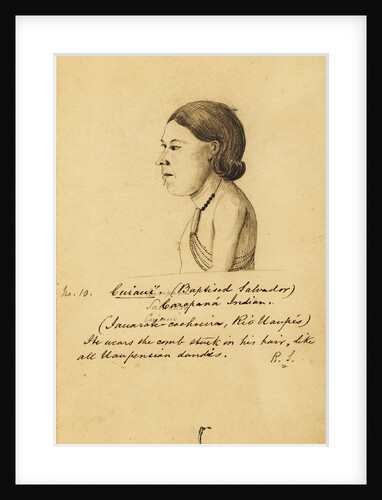 No. 10. Cuiauí. (Baptised Salvador)
Carapaná Indian.
(Jauarate-cachoeira, Rio Uaupés)
He wears the comb stuck in his hair, like
all Uaupensian dandies. R. S.